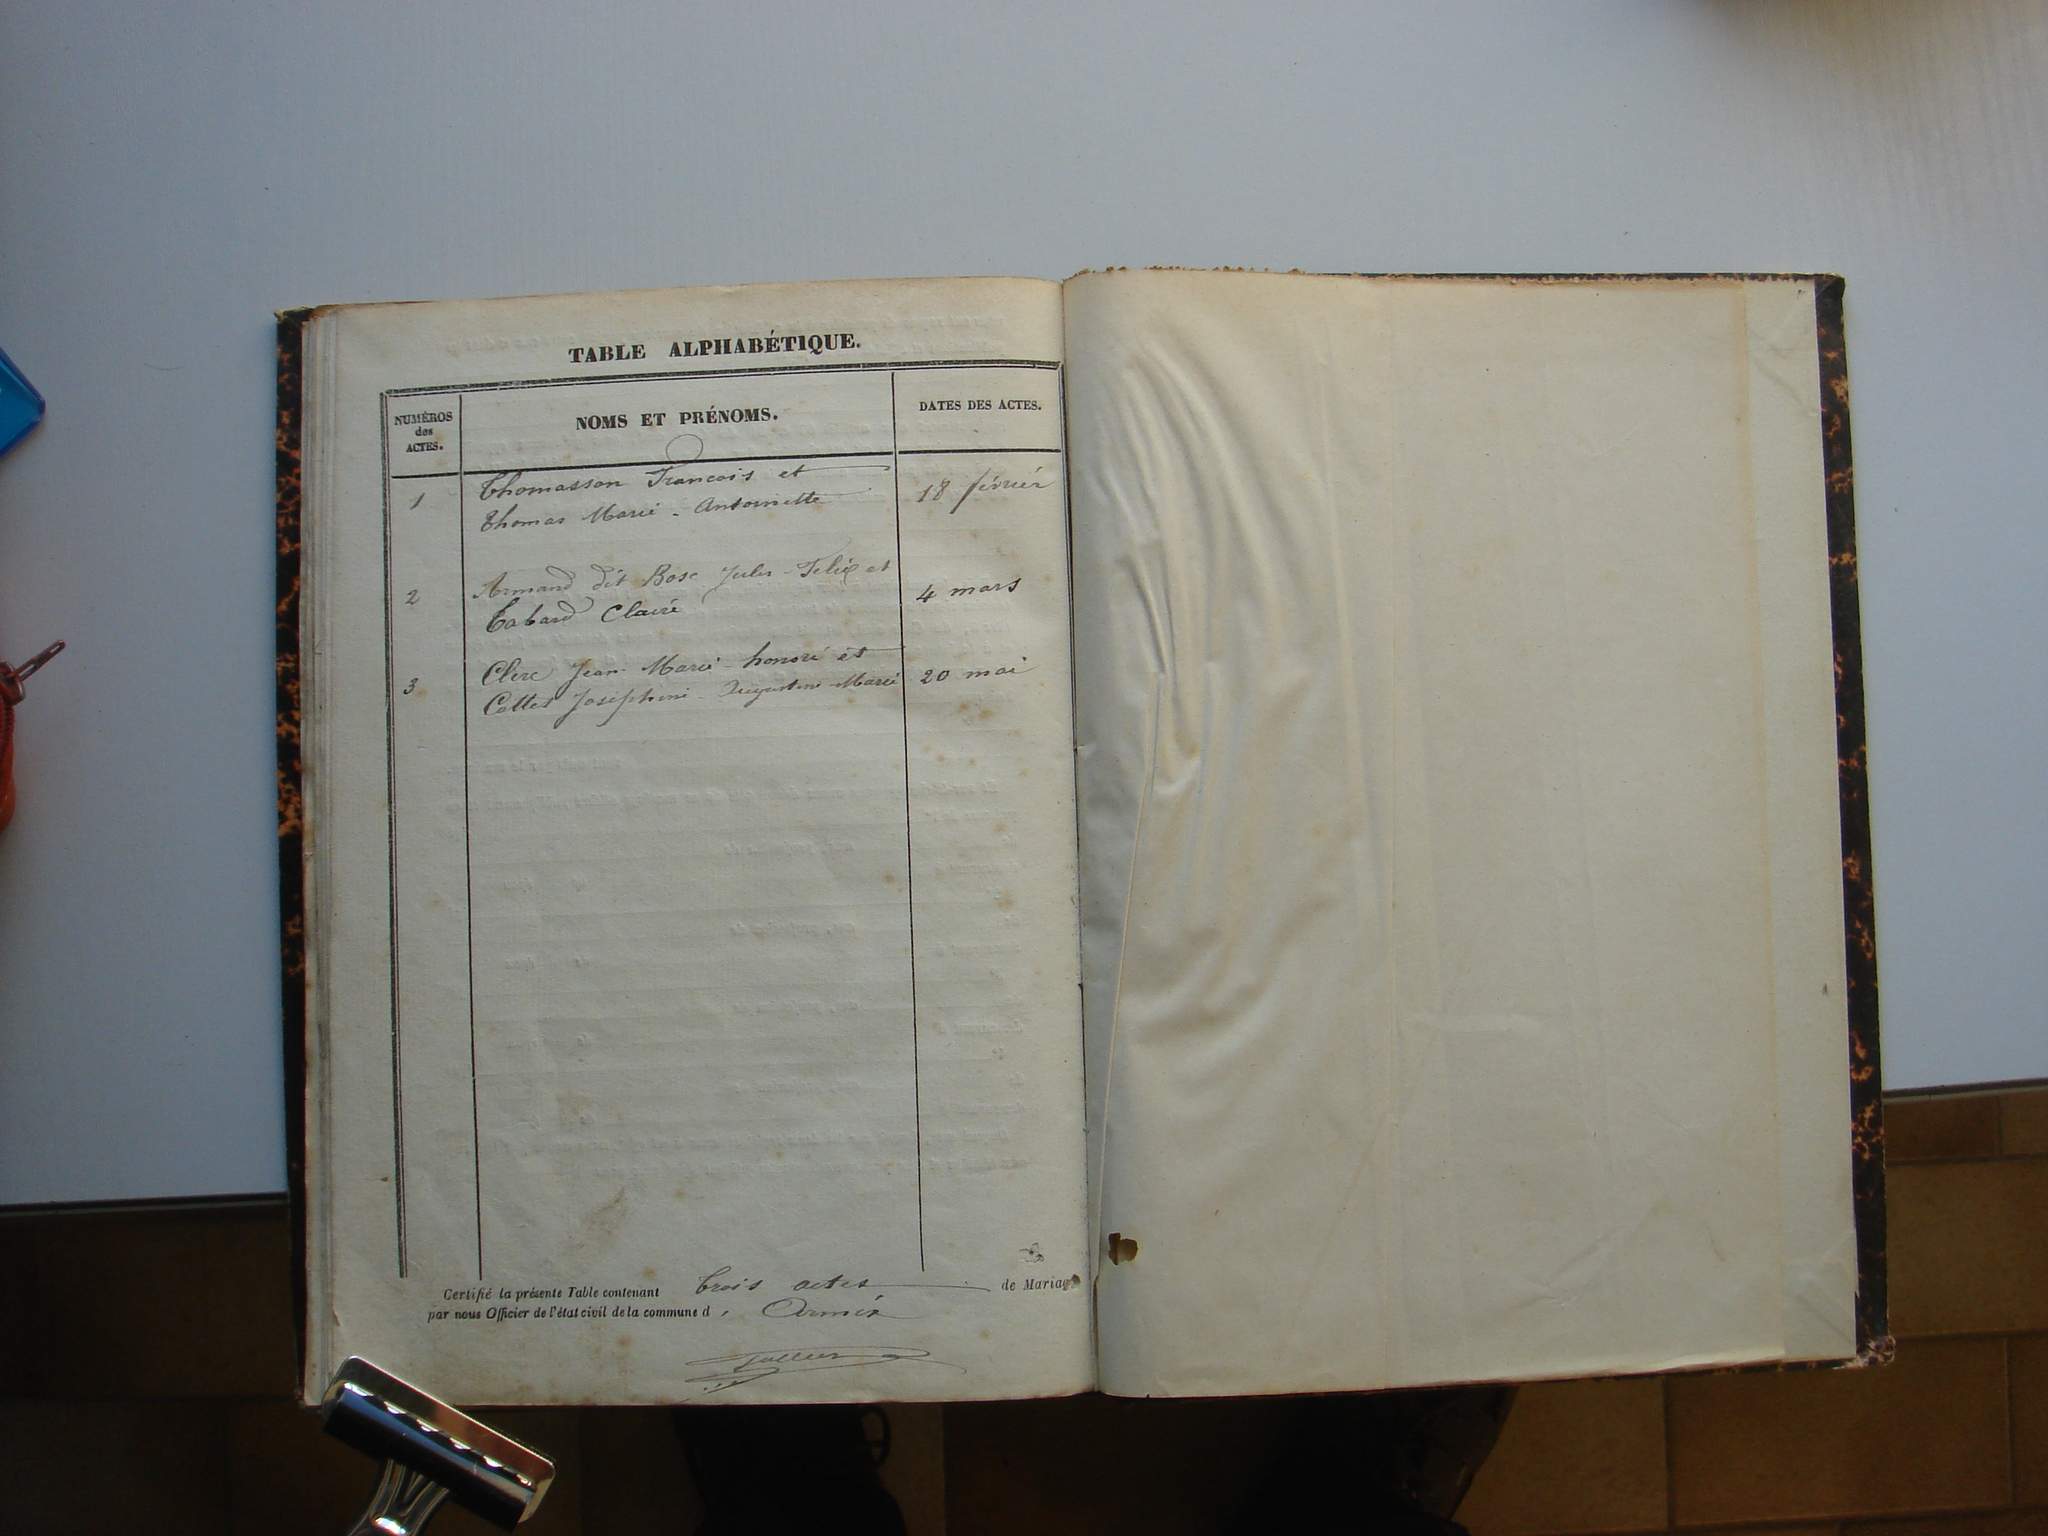 TABLE ALPHABÉTIQUE.
NUMÉROS des ACTES.
NOMS ET PRÉNOMS.
DATES DES ACTES.
1 Thomasson François et
Thomas Marie - Antoinette 18 février
2 Armand dit Bosc Jules - Felix et
Tabard Claire 4 mars
3 Clerc Jean - Marie - honoré et
Cottet Joséphine - Augustine - Marie 20 mai
Certifié la présente Table contenant trois actes de Mariage
par nous Officier de l'état civil de la commune d'